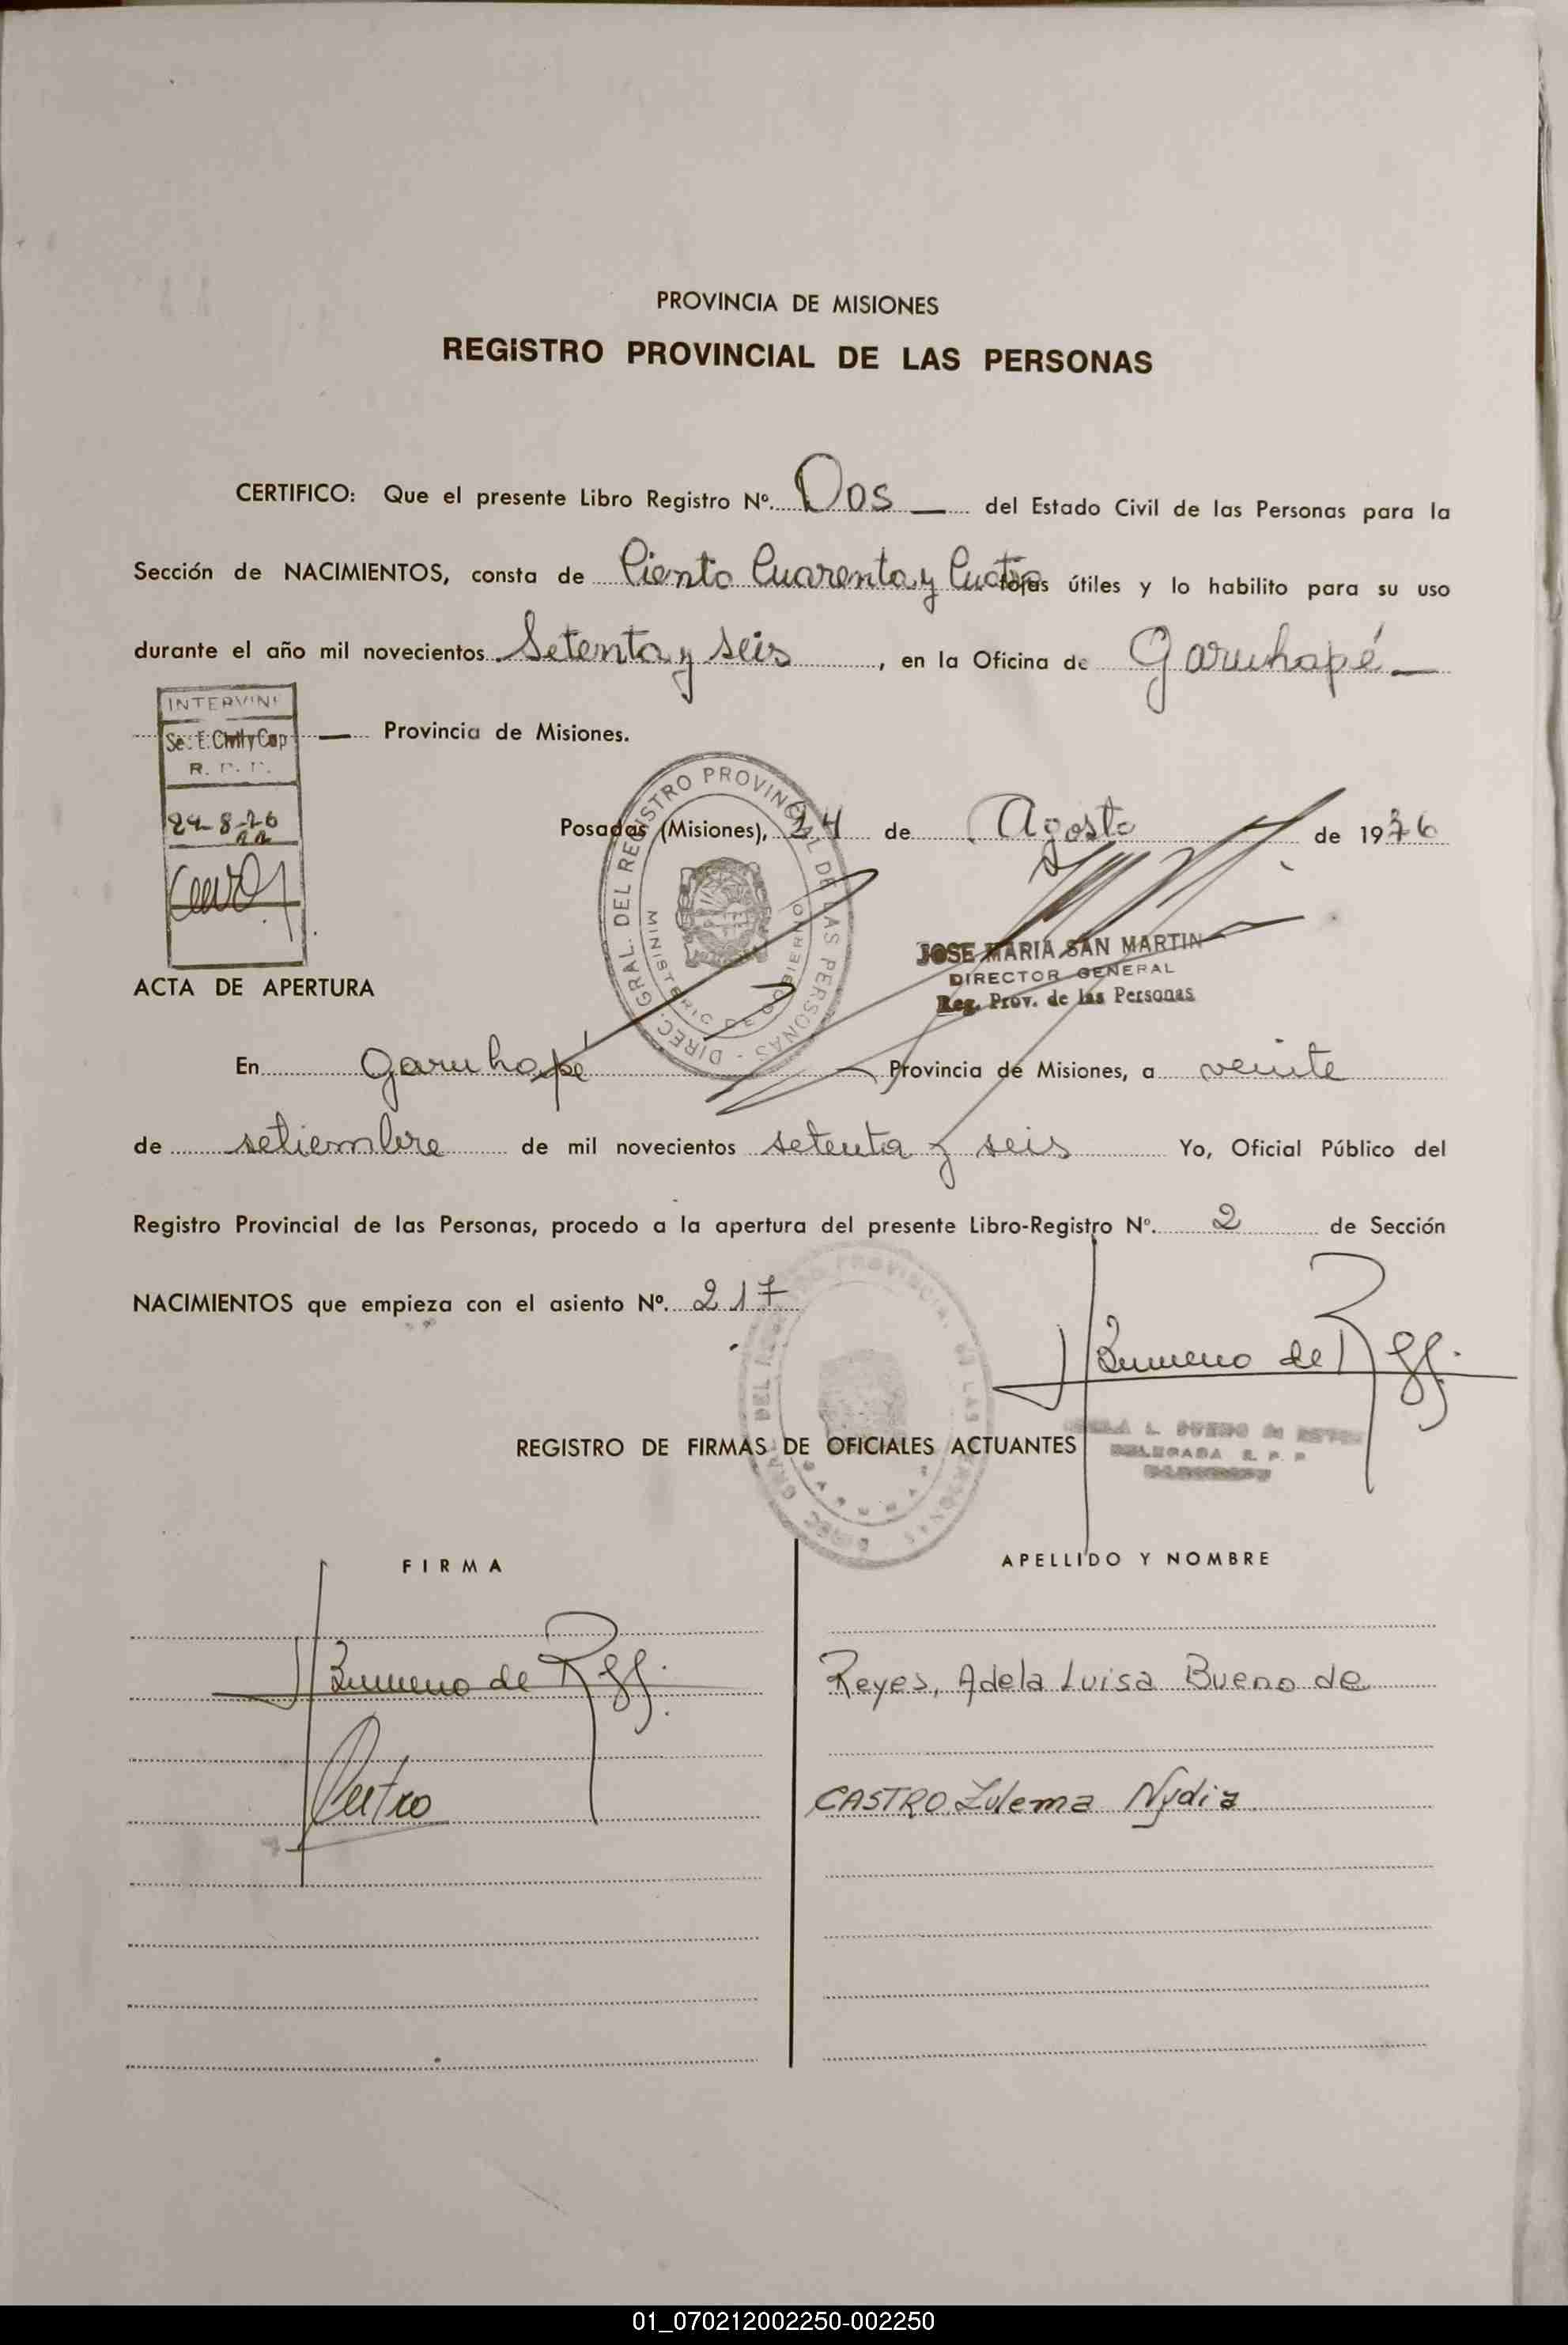 PROVINCIA DE MISIONES
REGISTRO PROVINCIAL DE LAS PERSONAS
CERTIFICO: Que el presente Libro Registro Nº. Dos — del Estado Civil de las Personas para la
Sección de NACIMIENTOS, consta de Ciento Cuarenta y Cuatro fojas útiles y lo habilito para su uso
durante el año mil novecientos Setenta y seis, en la Oficina de Garuhapé —
— Provincia de Misiones.
INTERVINE
Se. E. Civil y Cap
R. P. P.
24-8-76
Posadas (Misiones), 24 de Agosto de 1976
DIREC. GRAL. DEL REGISTRO PROVINCIAL DE LAS PERSONAS
MINISTERIO DE GOBIERNO
JOSE MARIA SAN MARTIN
DIRECTOR GENERAL
Reg. Prov. de las Personas
ACTA DE APERTURA
En Garuhapé — Provincia de Misiones, a veinte
de setiembre de mil novecientos setenta y seis Yo, Oficial Público del
Registro Provincial de las Personas, procedo a la apertura del presente Libro-Registro Nº. 2 de Sección
NACIMIENTOS que empieza con el asiento Nº. 217
DELEGADA R. P. P.
REGISTRO DE FIRMAS DE OFICIALES ACTUANTES
FIRMA
APELLIDO Y NOMBRE
Reyes, Adela Luisa Bueno de
Castro
CASTRO Zulema Nydia
01_070212002250-002250